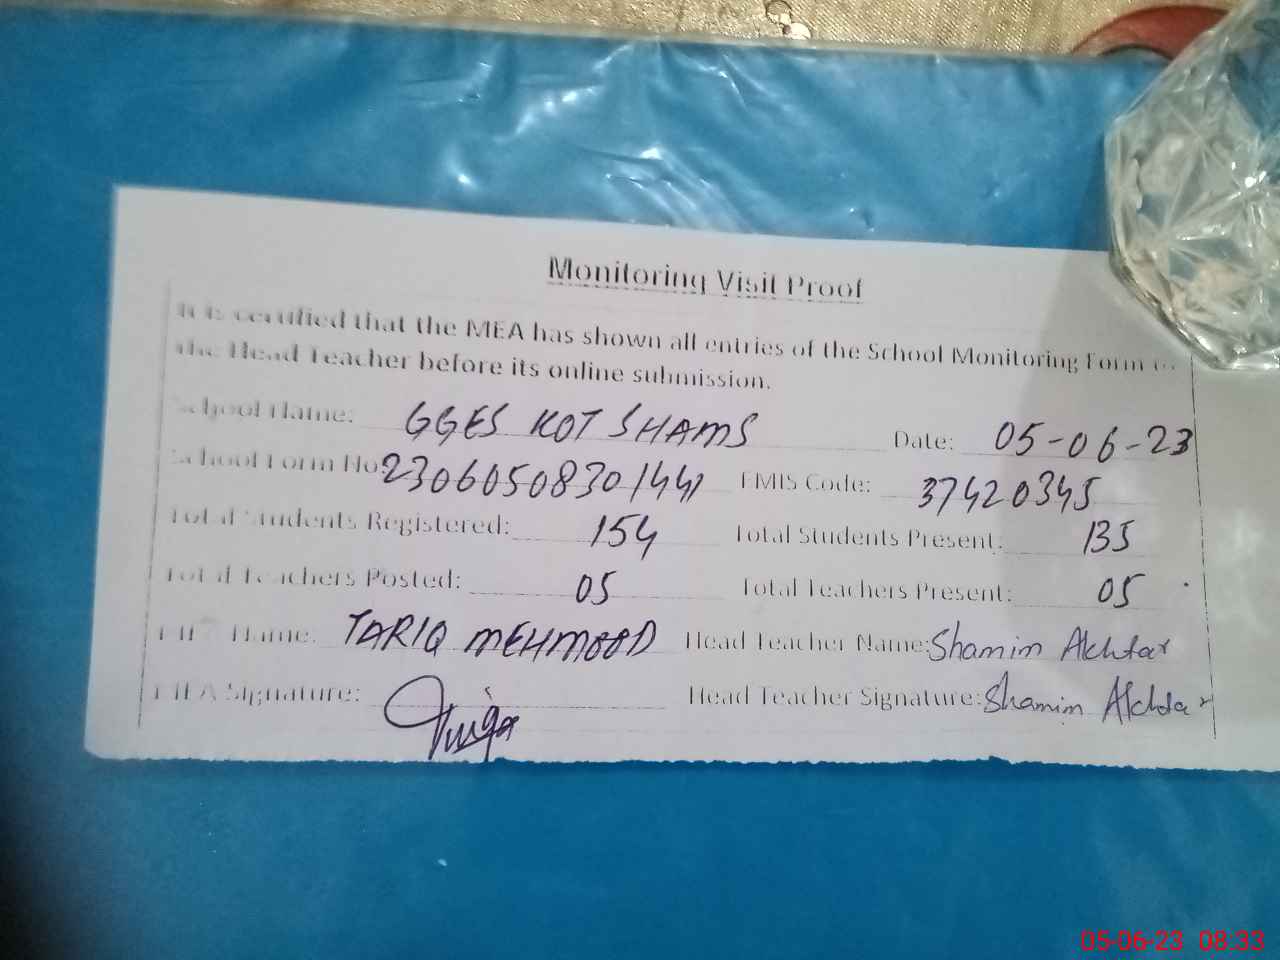 Monitoring Visit Proof
It is certified that the MEA has shown all entries of the School Monitoring Form to
the Head Teacher before its online submission.
School Name: GGES KOT SHAMS Date: 05-06-23
School Form No: EMIS Code: 37420345
Total Students Registered: 154 Total Students Present: 135
Total Teachers Posted: 05 Total Teachers Present: 05
MEA Name: TARIQ MEHMOOD Head Teacher Name: Shamim Akhtar
MEA Signature: Head Teacher Signature: Shamim Akhtar
05-06-23 08:33